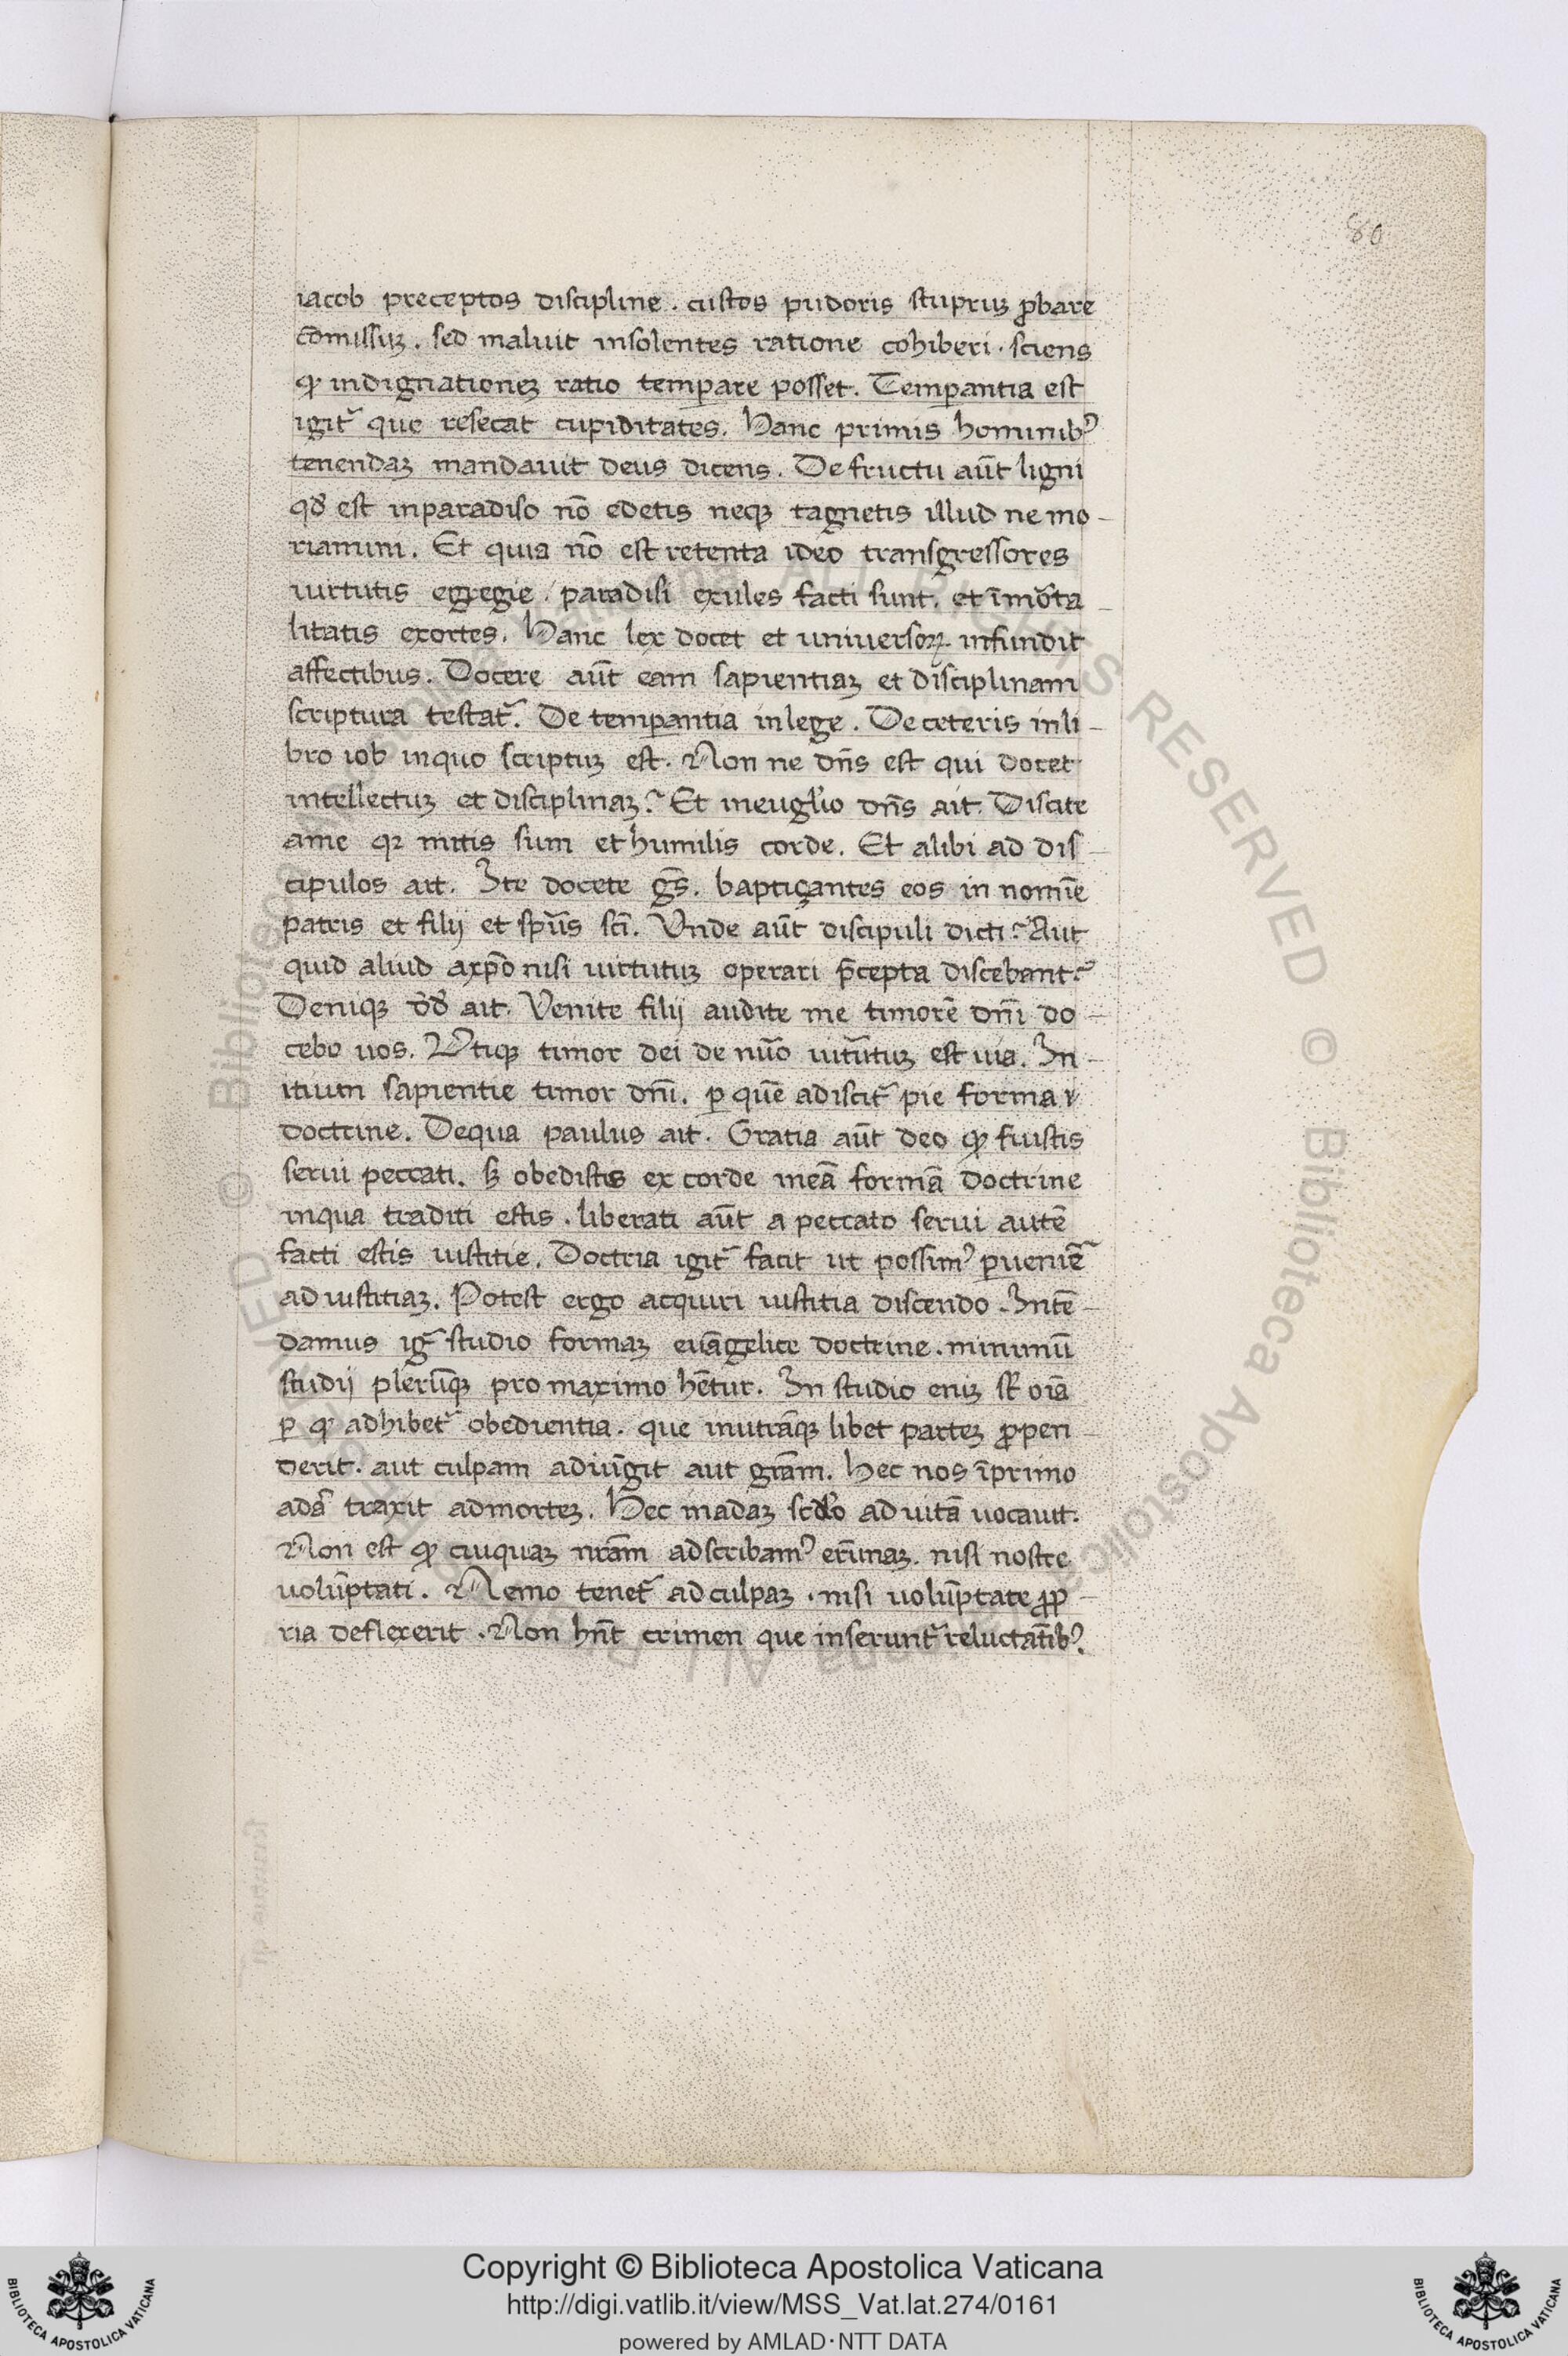 80
iacob preceptos discipline . custos pudoris stupruꝫ ꝓbare
cōmissuꝫ . sed maluit insolentes ratione cohiberi . sciens
ꝙ indignationeꝫ ratio temꝑare posset . Temꝑantia est
igit᷑ que resecat cupiditates . Hanc primis hominib⁹
tenendaꝫ mandauit deus dicens . De fructu aūt ligni
qd̓ est inparadiso nō edetis neqꝫ tagnetis illud ne mo-
riamini . Et quia nō est retenta ideo transgressores
uirtutis egregie . paradisi exules facti sunt . et īmōrta-
litatis exortes . Hanc lex docet et uniuersoꝝ infundit
affectibus . Docere aūt eam sapientiaꝫ et disciplinam
scriptura testat᷑ . De temꝑantia inlege . De ceteris inli-
bro iob inquo scriptuꝫ est . Non ne dn̄s est qui docet
intellectuꝫ et disciplinaꝫ ? Et ineuglio dn̄s ait . Discite
ame qꝛ mitis sum et humilis corde . Et alibi ad dis-
cipulos ait . Ite docete gs̄ . baptiçantes eos in nomīe
patris et filij et spūs scī . Vnde aūt discipuli dicti ? Aut
quid aliud axpō nisi uirtutuꝫ operari p̄cepta discebant ?
Deniqꝫ dd̓ ait . Venite filij audite me timorē dn̄i do-
cebo uos . Vtiqꝫ timor dei de nūo uirtutuꝫ est uia . In-
itium sapientie timor dn̄i . ꝑ quē adiscit᷑ pie forma
doctrine . Dequa paulus ait . Gratia aūt deo ꝙ fuistis
serui peccati . sꝫ obedistis ex corde ineā formā doctrine
inqua traditi estis . liberati aūt a peccato serui autē
facti estis iustitie . Doctria igit᷑ facit ut possim⁹ ꝑueniē
ad iustitiaꝫ . Potest ergo acquiri iustitia discendo . Intē-
damus ig᷑ studio formaꝫ euāgelice doctrine . minimū
studij plerūqꝫ pro maximo hētur . In studio eniꝫ st̄ oīa
ꝑ ꝙ adhibet᷑ obedientia . que inutrāqꝫ libet parteꝫ ꝓpen-
derit . aut culpam adiūgit aut grām . Hec nos īprimo
adā traxit admorteꝫ . Hec inadaꝫ scd̓o ad uitā uocauit .
Non est ꝙ cuiquaꝫ nrām adscribam⁹ erūnaꝫ . nisi nostre
uolūptati . Nemo tenet᷑ ad culpaꝫ . nisi uolūptate ꝓp-
ria deflexerit . Non hn̄t crimen que inserunt᷑ reluctātib⁹ .
© Biblioteca Apostolica Vaticana ALL RIGHTS RESERVED
Copyright © Biblioteca Apostolica Vaticana
http://digi.vatlib.it/view/MSS_Vat.lat.274/0161
powered by AMLAD·NTT DATA
BIBLIOTECA APOSTOLICA VATICANA
BIBLIOTECA APOSTOLICA VATICANA